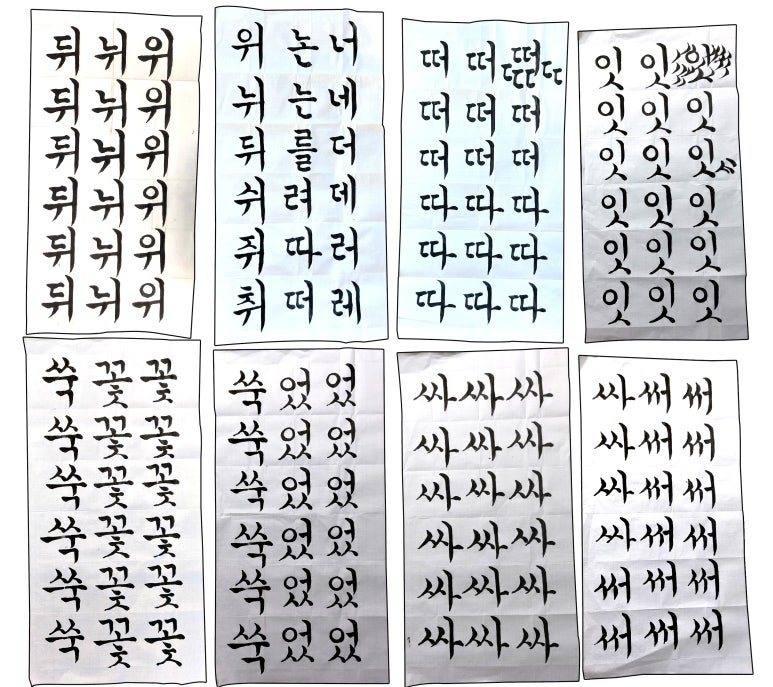 뒤 뉘 위
뒤 뉘 위
뒤 뉘 위
뒤 뉘 위
뒤 뉘 위
뒤 뉘 위
위 논 너
뉘 는 네
뒤 를 더
쉬 려 데
쥐 따 러
취 떠 레
떠 떠 떠
떠 떠 떠
떠 떠 떠
따 따 따
따 따 따
따 따 따
잇 잇 잇
잇 잇 잇
잇 잇 잇
잇 잇 잇
잇 잇 잇
잇 잇 잇
쑥 꽃 꽃
쑥 꽃 꽃
쑥 꽃 꽃
쑥 꽃 꽃
쑥 꽃 꽃
쑥 꽃 꽃
쑥 었 었
쑥 었 었
쑥 었 었
쑥 었 었
쑥 었 었
쑥 었 었
싸 싸 싸
싸 싸 싸
싸 싸 싸
싸 싸 싸
싸 싸 싸
싸 싸 싸
싸 써 써
싸 써 써
싸 써 써
싸 써 써
써 써 써
써 써 써